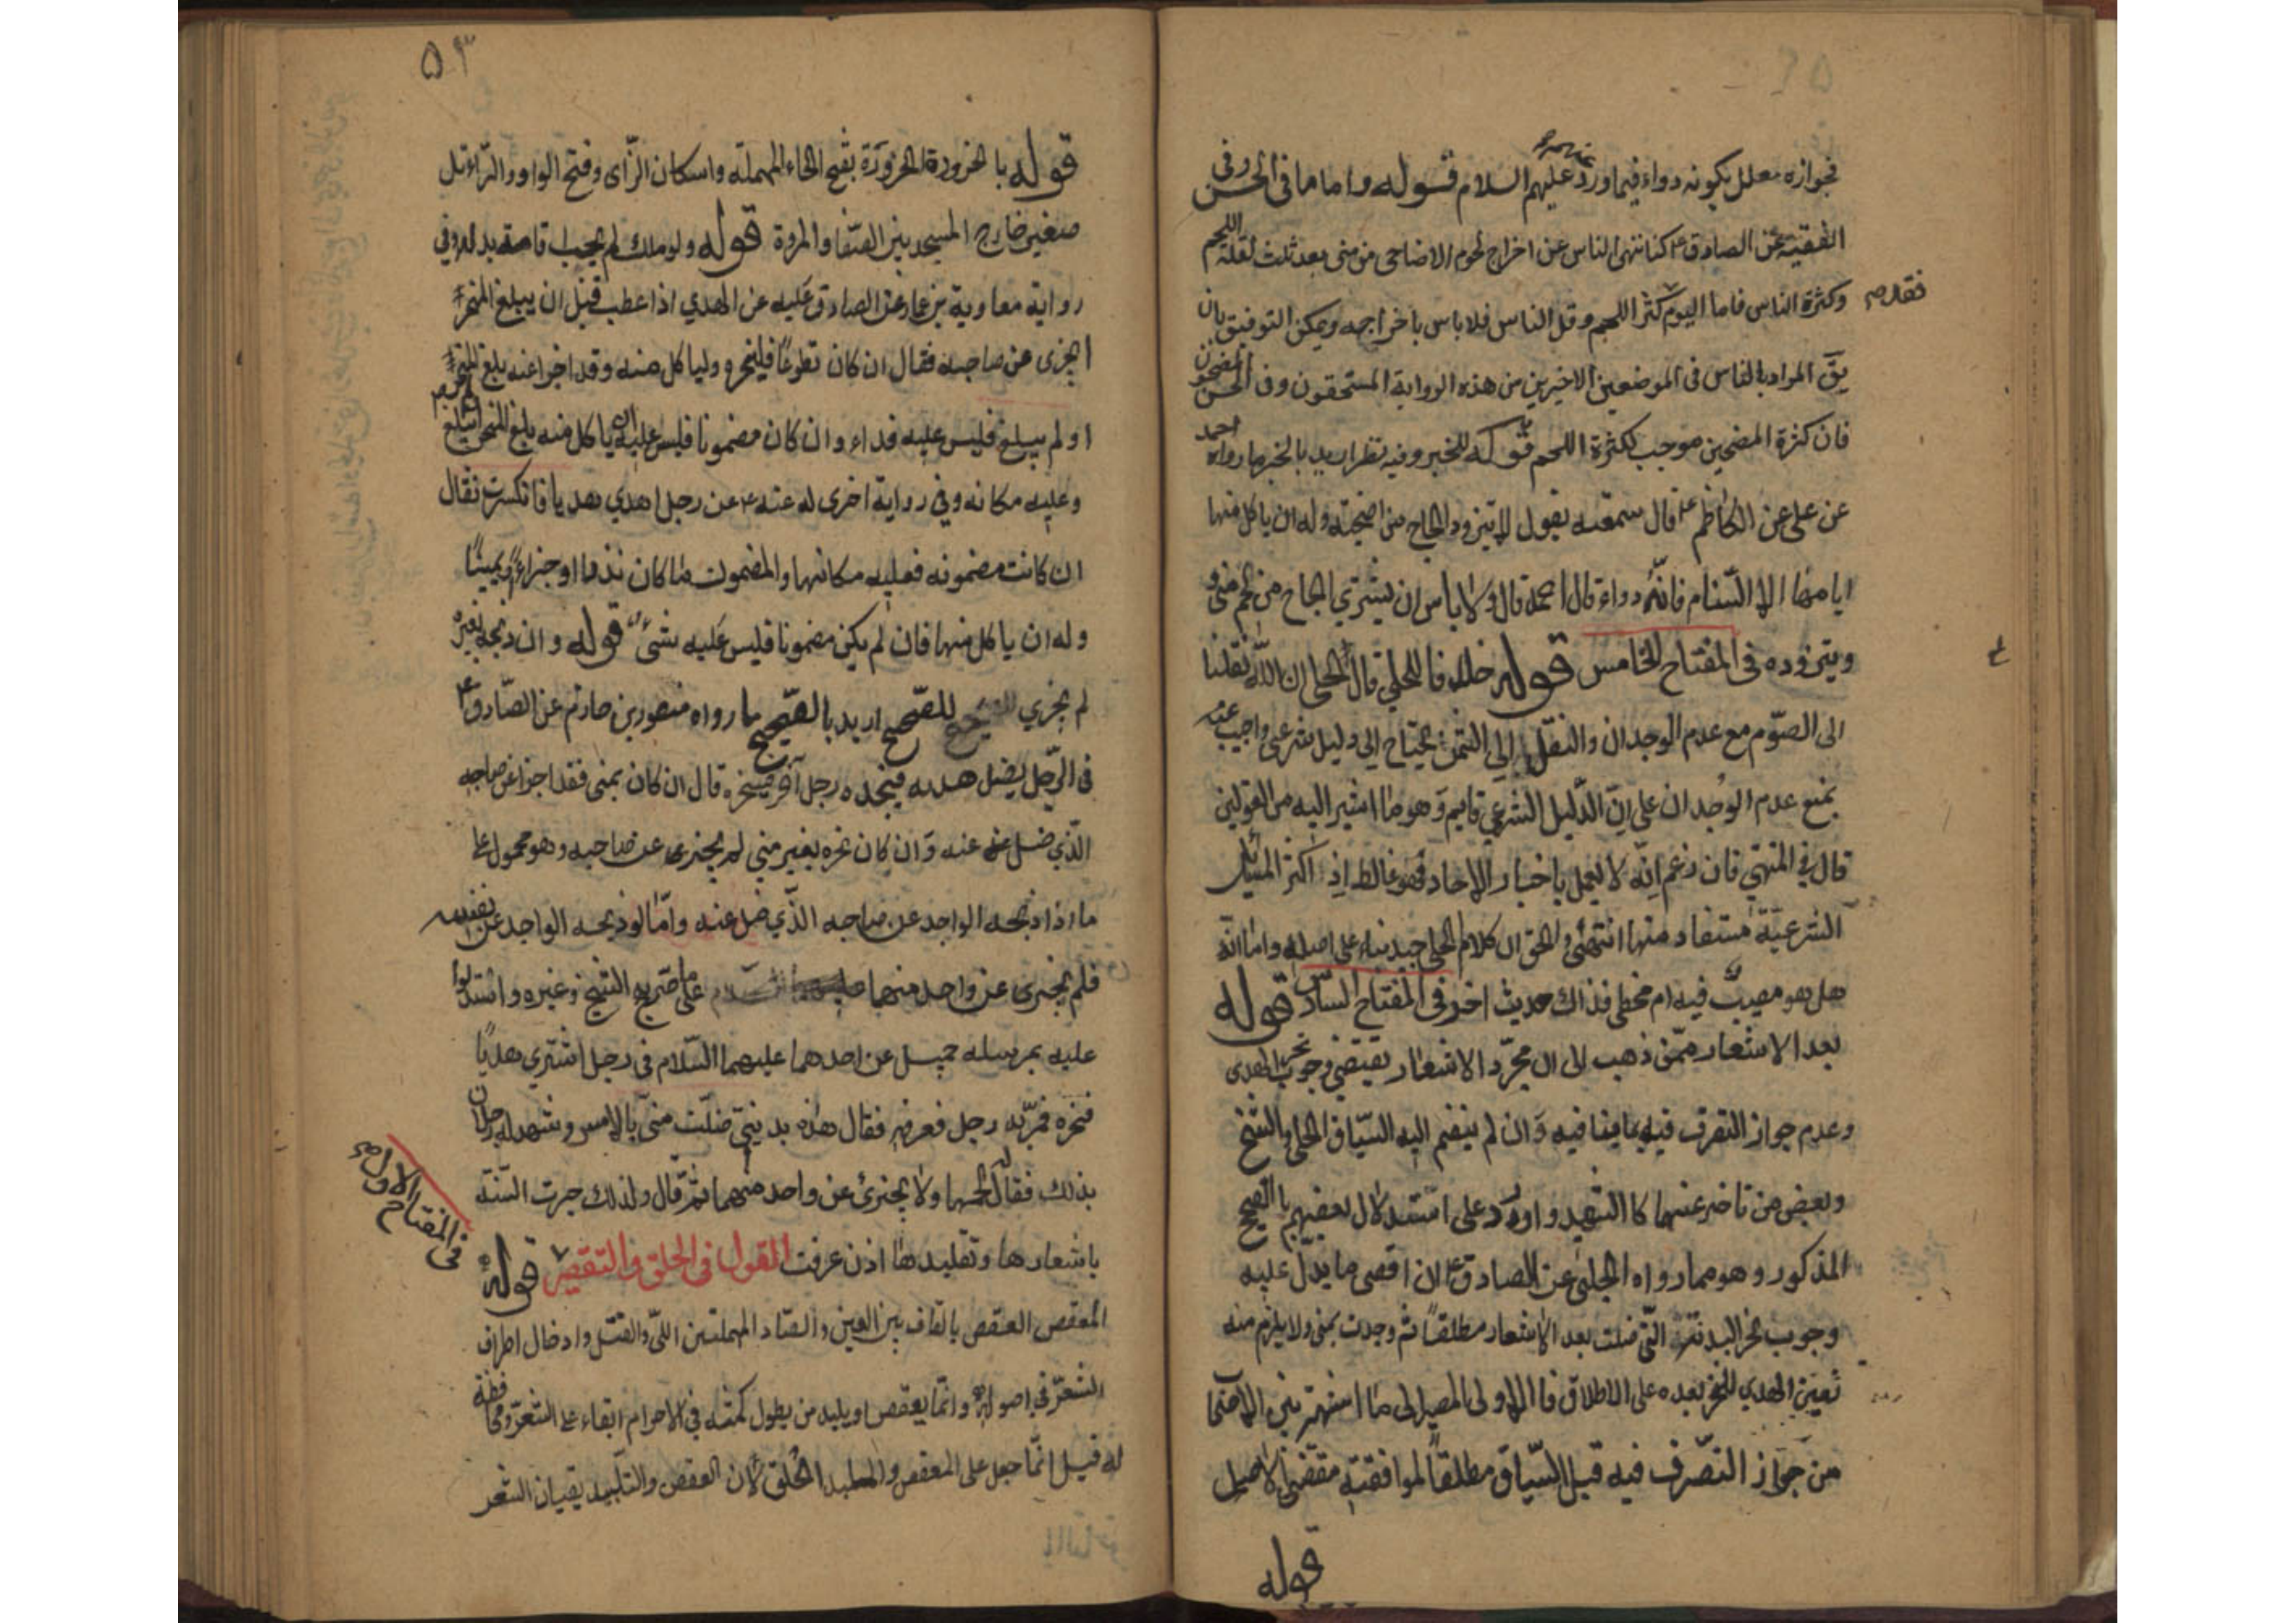 فجوازه معلل بكونه دواء فيما ورد عنهم عليهم السلام قوله واما ما في الحسن وفي
الفقيه عن الصادق ع كنا ننهى الناس عن اخراج لحوم الاضاحى من منى بعد ثلث لقلة اللحم
وكثرة الناس فاما اليوم فقد كثر اللحم وقل الناس فلا باس باخراجه ويمكن التوفيق بان
يق المراد بالناس في الموضعين الاخيرين من هذه الرواية المستحقون وفى الحسن المضحون
فان كثرة المضحين موجب لكثرة اللحم قوله للخبر وفيه نظر اريد بالخبر ما رواه احمد
عن على عن الكاظم ع قال سمعته يقول لا يتزود الحاج من اضحيته وله ان ياكل منها
ايامها الا السنام فانه دواء قال احمد قال ولا باس ان يشتري الحاج من لحم منى
ويتزوده في المفتاح الخامس قوله خلافا للحلي قال الحلي ان الله نقلنا
الى الصوم مع عدم الوجدان والنقل الى الثمن يحتاج الى دليل شرعى واجيب عنه
بمنع عدم الوجدان على ان الدليل الشرعي قايم وهو ما اشير اليه من القولين
قال في المنتهى فان زعم انه لا يعمل باخبار الاحاد فهو غالط اذ اكثر المسائل
الشرعية مستفاد منها انتهى والحق ان كلام الحلي جيد بناء على اصله واما انه
هل هو مصيب فيه ام مخطى فذاك حديث اخر في المفتاح السادس قوله
بعد الاشعار ممن ذهب الى ان مجرد الاشعار يقتضي وجوب نحر الهدى
وعدم جواز التصرف فيه بما ينافيه وان لم ينضم اليه السياق الحلي والشيخ
وبعض من تاخر عنهما كا الشهيد واورد على استدلال بعضهم با الصحيح
المذكور وهو مما رواه الحلبي عن الصادق ع ان اقصى ما يدل عليه
وجوب نحر البدنة التي ضلت بعد الاشعار مطلقا ثم وجدت بمنى ولا يلزم منه
تعيين الهدي للنحر بعده على الاطلاق فا الاولى المصير الى ما اشتهر بين الاصحاب
من جواز التصرف فيه قبل السياق مطلقا لموافقته مقتضى الاصل
قوله
٥٣
قوله با الحزورة الحزورة بفتح الحاء المهملة واسكان الزاى وفتح الواو والراء تل
صغير خارج المسجد بين الصفا والمروة قوله ولو ملك لم يجب اقامة بدله وفي
رواية معاوية بن عمار عن الصادق عليه عن الهدي اذا عطب قبل ان يبلغ المنحر
ايجزى عن صاحبه فقال ان كان تطوعا فلينحره ولياكل منه وقد اجزا عنه بلغ المنحر
او لم يبلغ فليس عليه فداء وان كان مضمونا فليس عليه ان ياكل منه بلغ المنحر او لم يبلغ
وعليه مكانه وفي رواية اخرى له عنه ع عن رجل اهدي هديا فانكسرت فقال
ان كانت مضمونه فعليه مكانها والمضمون ما كان نذرا او جزاء او يمينا
وله ان ياكل منها فان لم يكن مضمونا فليس عليه شئ قوله وان ذبحه غيره
لم يجزي للصحيح اريد بالصحيح ما رواه منصور بن حازم عن الصادق ع
في الرجل يضل هديه فيجده رجل آخر فينحره قال ان كان بمنى فقد اجزا عن صاحبه
الذي ضل عنه وان كان نحره بغير منى لم يجزى عن صاحبه وهو محمول على
ما اذا ذبحه الواجد عن صاحبه الذي ضل عنه واما لو ذبحه الواجد عن نفسه
فلم يجزى عن واحد منهما على ما صرح به الشيخ وغيره واستدلوا
عليه بمرسلة جميل عن احدهما عليهما السلام في رجل اشترى هديا
فنحره فمر به رجل فعرفه فقال هذه بدنتي ضلت منى بالامس وشهد له رجلان
بذلك فقال له لحمها ولا يجزئ عن واحد منهما ثم قال ولذلك جرت السنة
باشعارها وتقليدها اذن عرفت القول في الحلق والتقصير قوله
في المفتاح الاول
المعقص العقص بالقاف بين العين والصاد المهملتين اللى والفتل وادخال اطراف
الشعر في اصوله وانما يعقص او يلبد من يطول مكثه في الاحرام ابقاء على الشعر ومحافظة
له قيل انما جعل على المعقص والملبد الحلق لان العقص والتلبيد يقيان الشعر